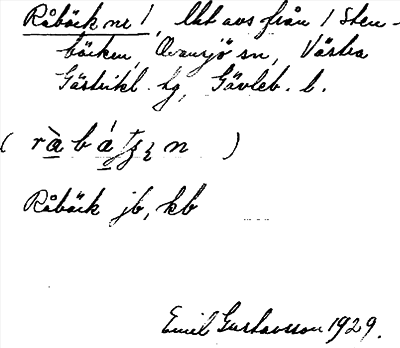 Råbäck nr 1, lht avs från 1 Sten-
bäcken, Ovansjö sn, Västra
Gästrikl. hg, Gävleb. l.
Råbäck jb, kb
Emil Gustavsson 1929.